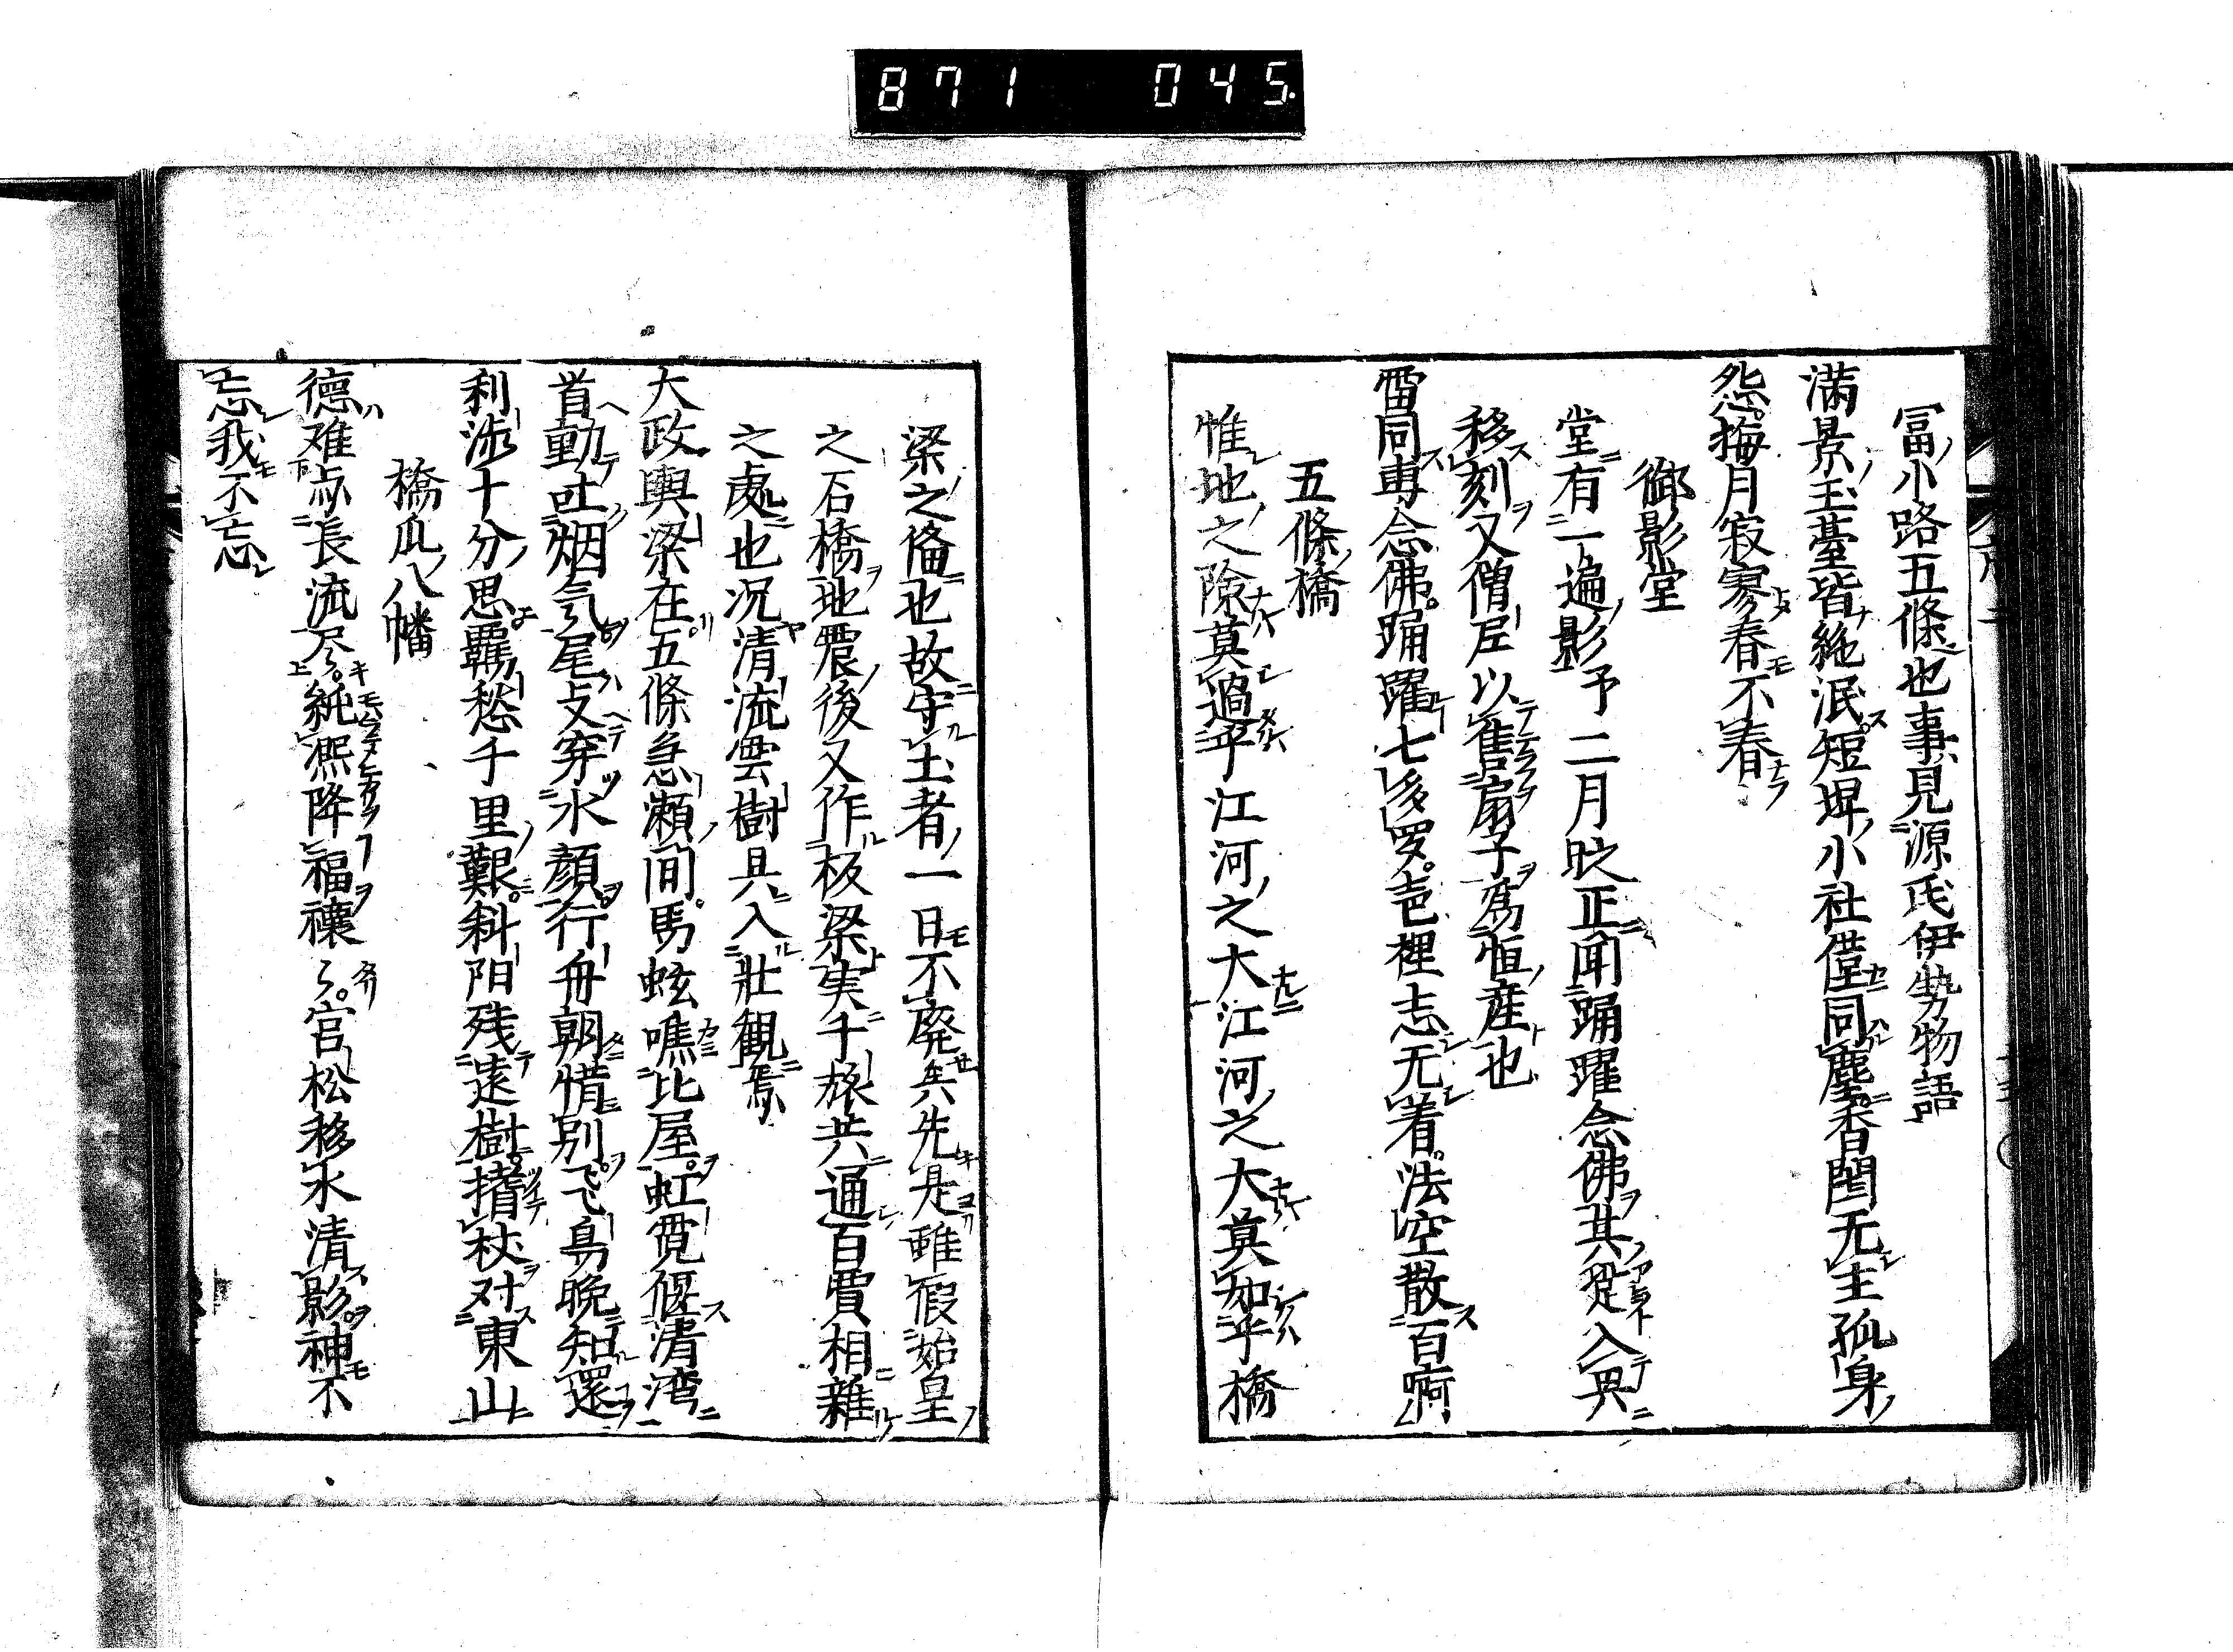 871 045
冨小路五條也事見源氏伊勢物語
満景玉臺皆絶泯短墀小社僅同塵香閨无主孤身
怨梅月寂寥春不春
御影堂
堂有一遍影予二月晈正聞踊躍念佛其從入興
移刻又僧尼以售扇子爲恒産也
雷同專念佛踊躍七多罗壱裡志无着法空散百啊
五條橋
惟地之險莫過乎江河之大江河之大莫如乎橋
梁之偹也故守土者一日不廃矣先是雖假始皇
之石橋地震後又作板梁実千旅共通百賈相雜
之處也況清流雲樹具入壯觀焉
大政輿梁在五條急瀬間馬蛟噍比屋虹霓偃清湾
首動吐烟気尾攴穿水顔行舟朝惜別飞鳥晩知還
利渉十分思羈愁千里艱斜阳残遠樹搘杖対東山
橋瓜八幡
德难忘長流尽純熈降福禳〻宮松移水清影神不
忘我不忘